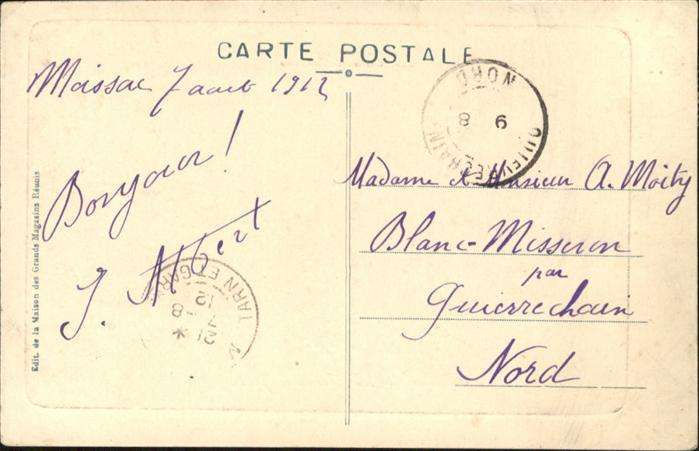 CARTE POSTALE
Moissac 7 aout 1912
Bonjour !
J. Albert
Madame & Monsieur A. Moity
Blanc-Misseron
par
Quievrechain
Nord
NORD
9
8
QUIEVRECHAIN
TARN ET GAR
8
Edit. de la Maison des Grands Magasins Réunis